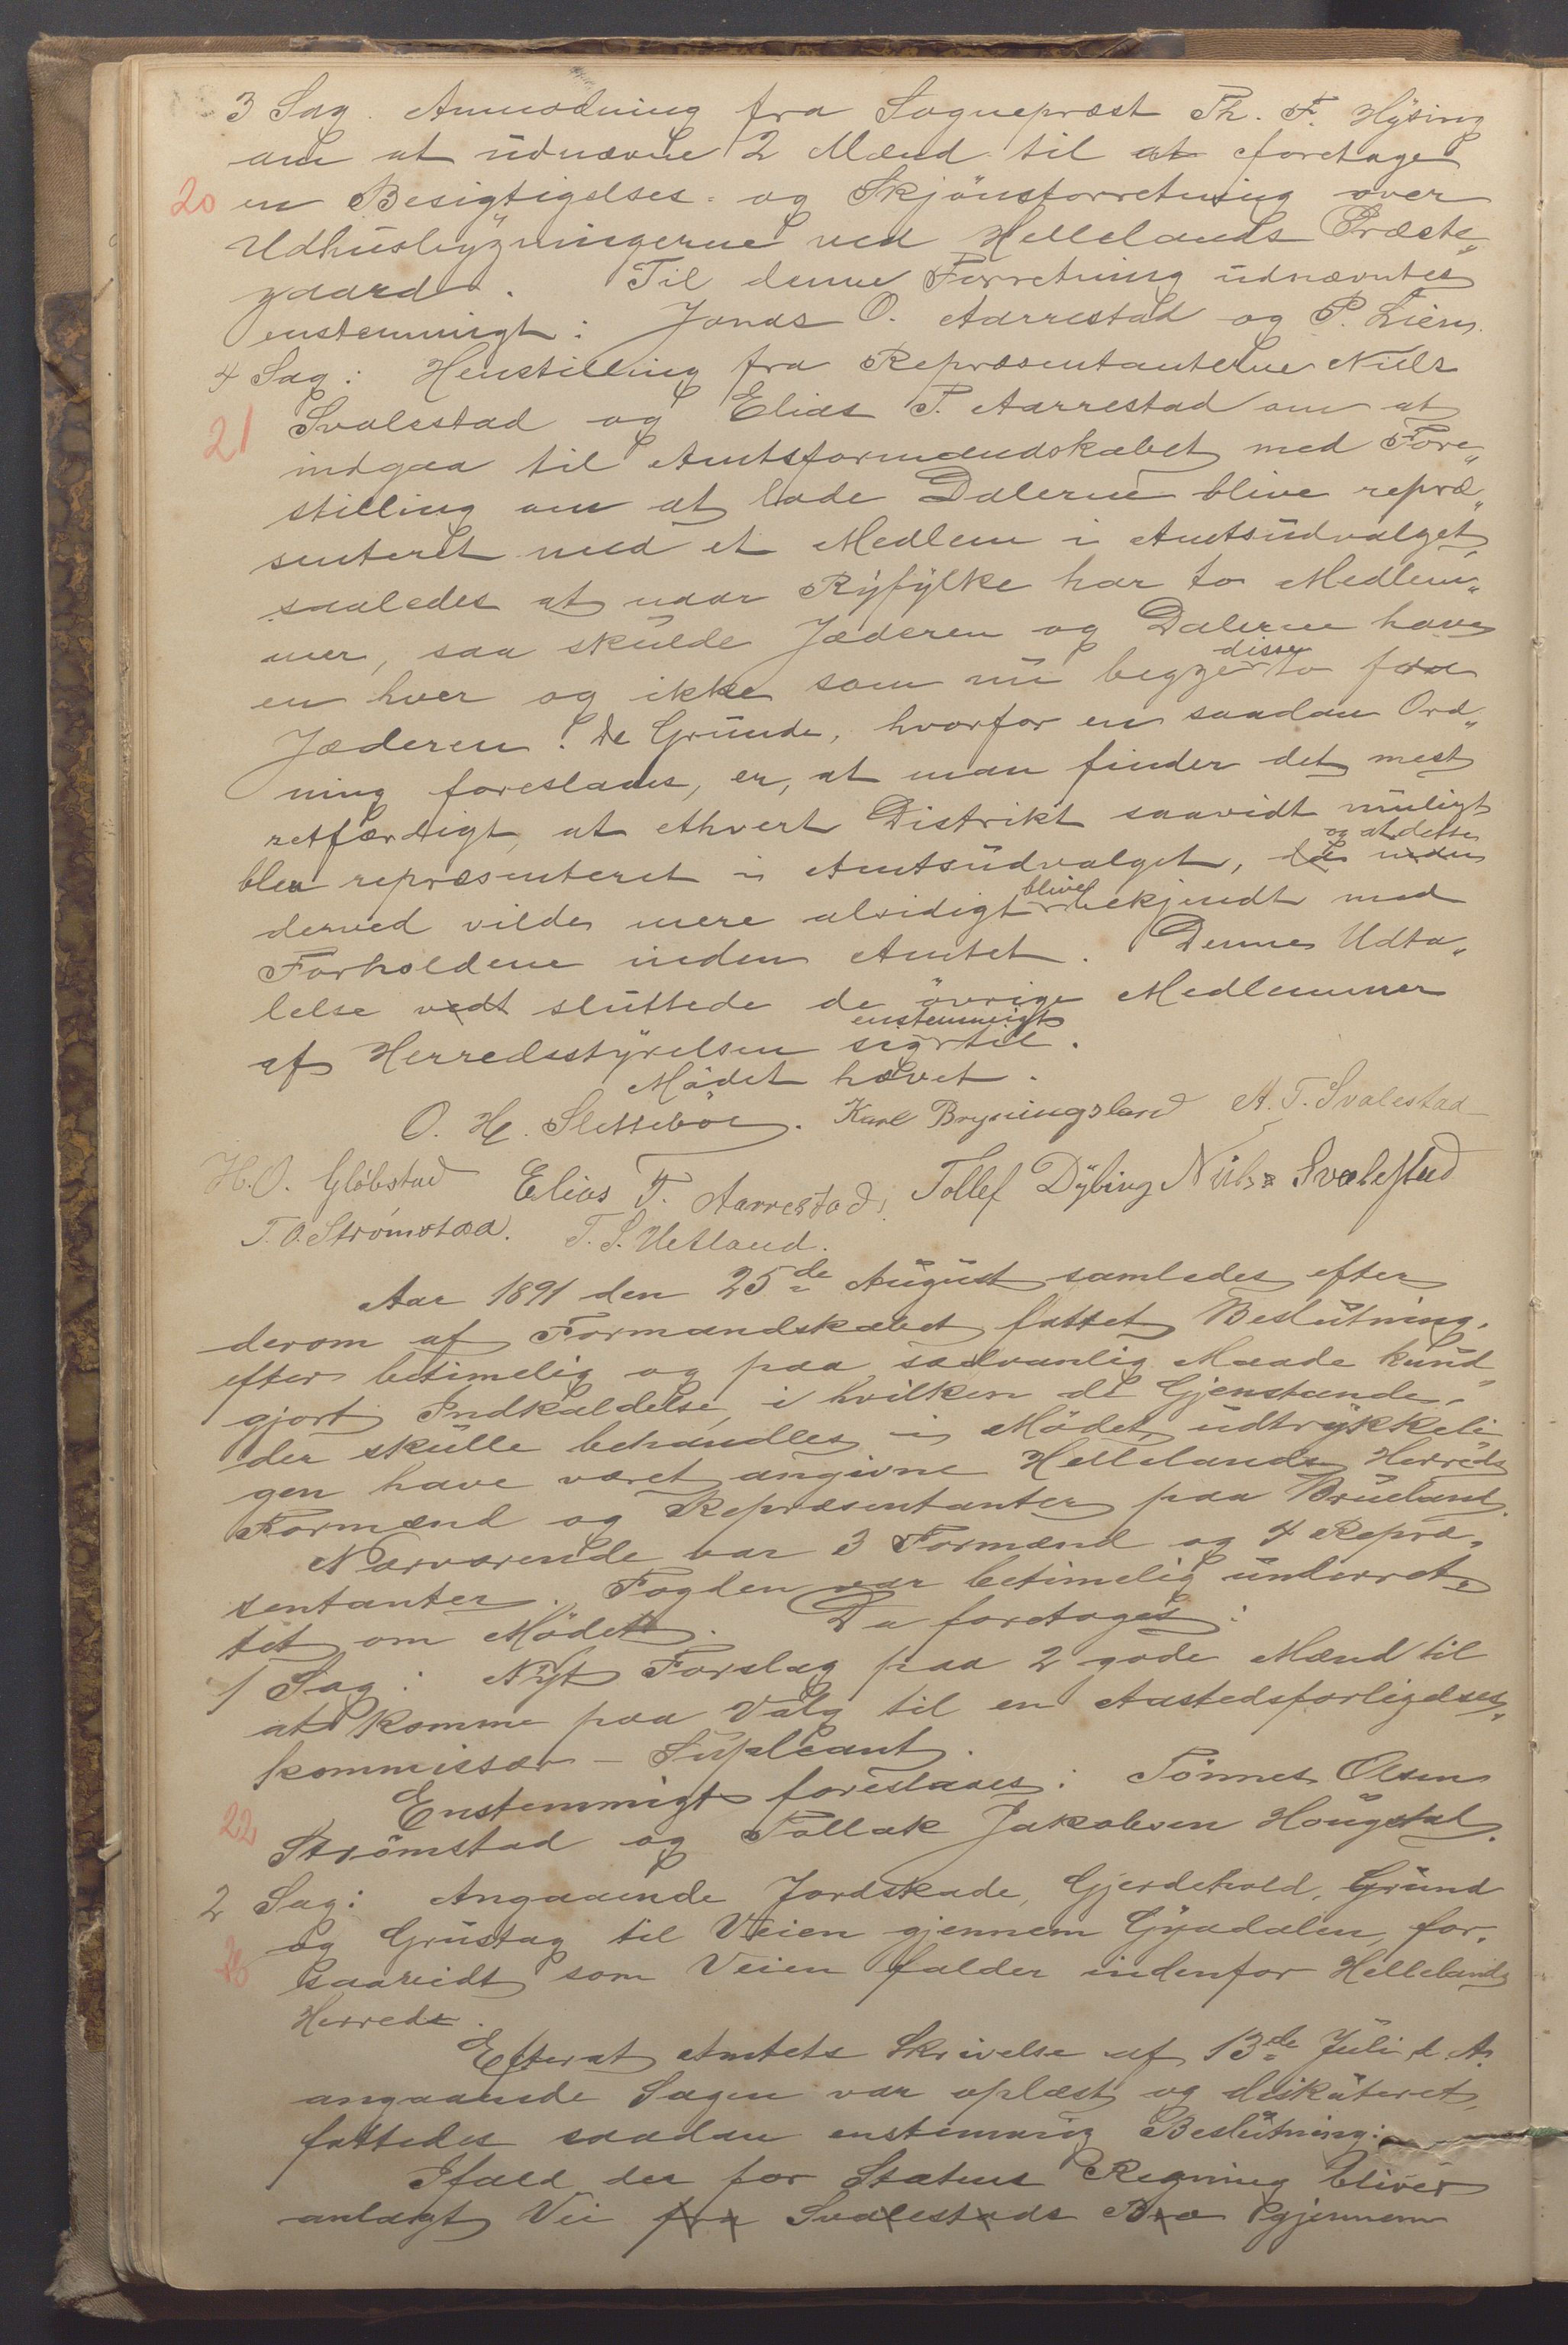 3 Sag. Anmodning fra Sognepræst Th. F. Hysing
om at udnævne 2 Mænd til at foretage
20 en Besigtigelses- og Skjönsforretning over
Udhusbygningerne ved Hellelands Præste„
gaard. Til denne Forretning udnævntes
enstemmigt: Jonas O. Aarrestad og P. Liem.
4 Sag: Henstilling fra Repræsentanterne Niels
21 Svalestad og Elias T. Aarrestad om at
indgaa til Amtsformandskabet med Fore„
stilling om at lade Dalerne blive repræ„
senteret med et Medlem i Amtsudvalget
saaledes at naar Ryfylke har to Medlem„
mer, saa skulde Jæderen og Dalerne have
en hver og ikke som nu begge disse to fra
Jæderen. De Grunde, hvorfor en saadan Ord„
ning foreslaaes, er, at man finder det mest
retfærdigt, at ethvert Distrikt saavidt muligt
blev repræsenteret i Amtsudvalget, og at dette
derved vilde mere alsidigt blive bekjendt med
Forholdene inden Amtet. Denne Udta„
lelse vedt sluttede de övrige Medlemmer
af Herredsstyrelsen sig enstemmigt til.
Mödet hævet.
O. H. Slettebøe. Karl Bryningsland A. T. Svalestad
H. O. Gløbstad Elias T. Aarrestad. Tollef Dybing Niels Svalestad
T. O. Strømstad. T. S. Hetland.
Aar 1891 den 25de August samledes efter
derom af Formandskabet fattet Beslutning,
efter betimelig og paa sædvanlig Maade kund„
gjort Indkaldelse, i hvilken de Gjenstande,
der skulle behandles i Mödet udtrykkeli„
gen have været angivne Hellelands Herreds
Formænd og Repræsentanter paa Brueland.
Nærværende var 3 Formænd og 4 Repræ„
sentanter. Fogden var betimelig underret„
tet om Mödet. Da foretoges:
1 Sag: Nyt Forslag paa 2 gode Mænd til
at komme paa Valg til en Aastedsforligelses„
kommissær-Supleant.
Enstemmigt foreslaaes: Tönnes Olsen
22 Strömstad og Tollak Jakobsen Hougstad.
2 Sag: Angaaende Jordskade, Gjerdehold, Grund
og Grustag til Veien gjennem Gyadalen, for„
saavidt som Veien falder indenfor Hellelands
Herred.
Efterat Amtets Skrivelse af 13de Juli d. A.
angaaende Sagen var oplæst og diskuteret,
fattedes saadan enstemmig Beslutning:
Ifald der for Statens Regning bliver
anlagt Vei fra Svalestads Bro gjennem